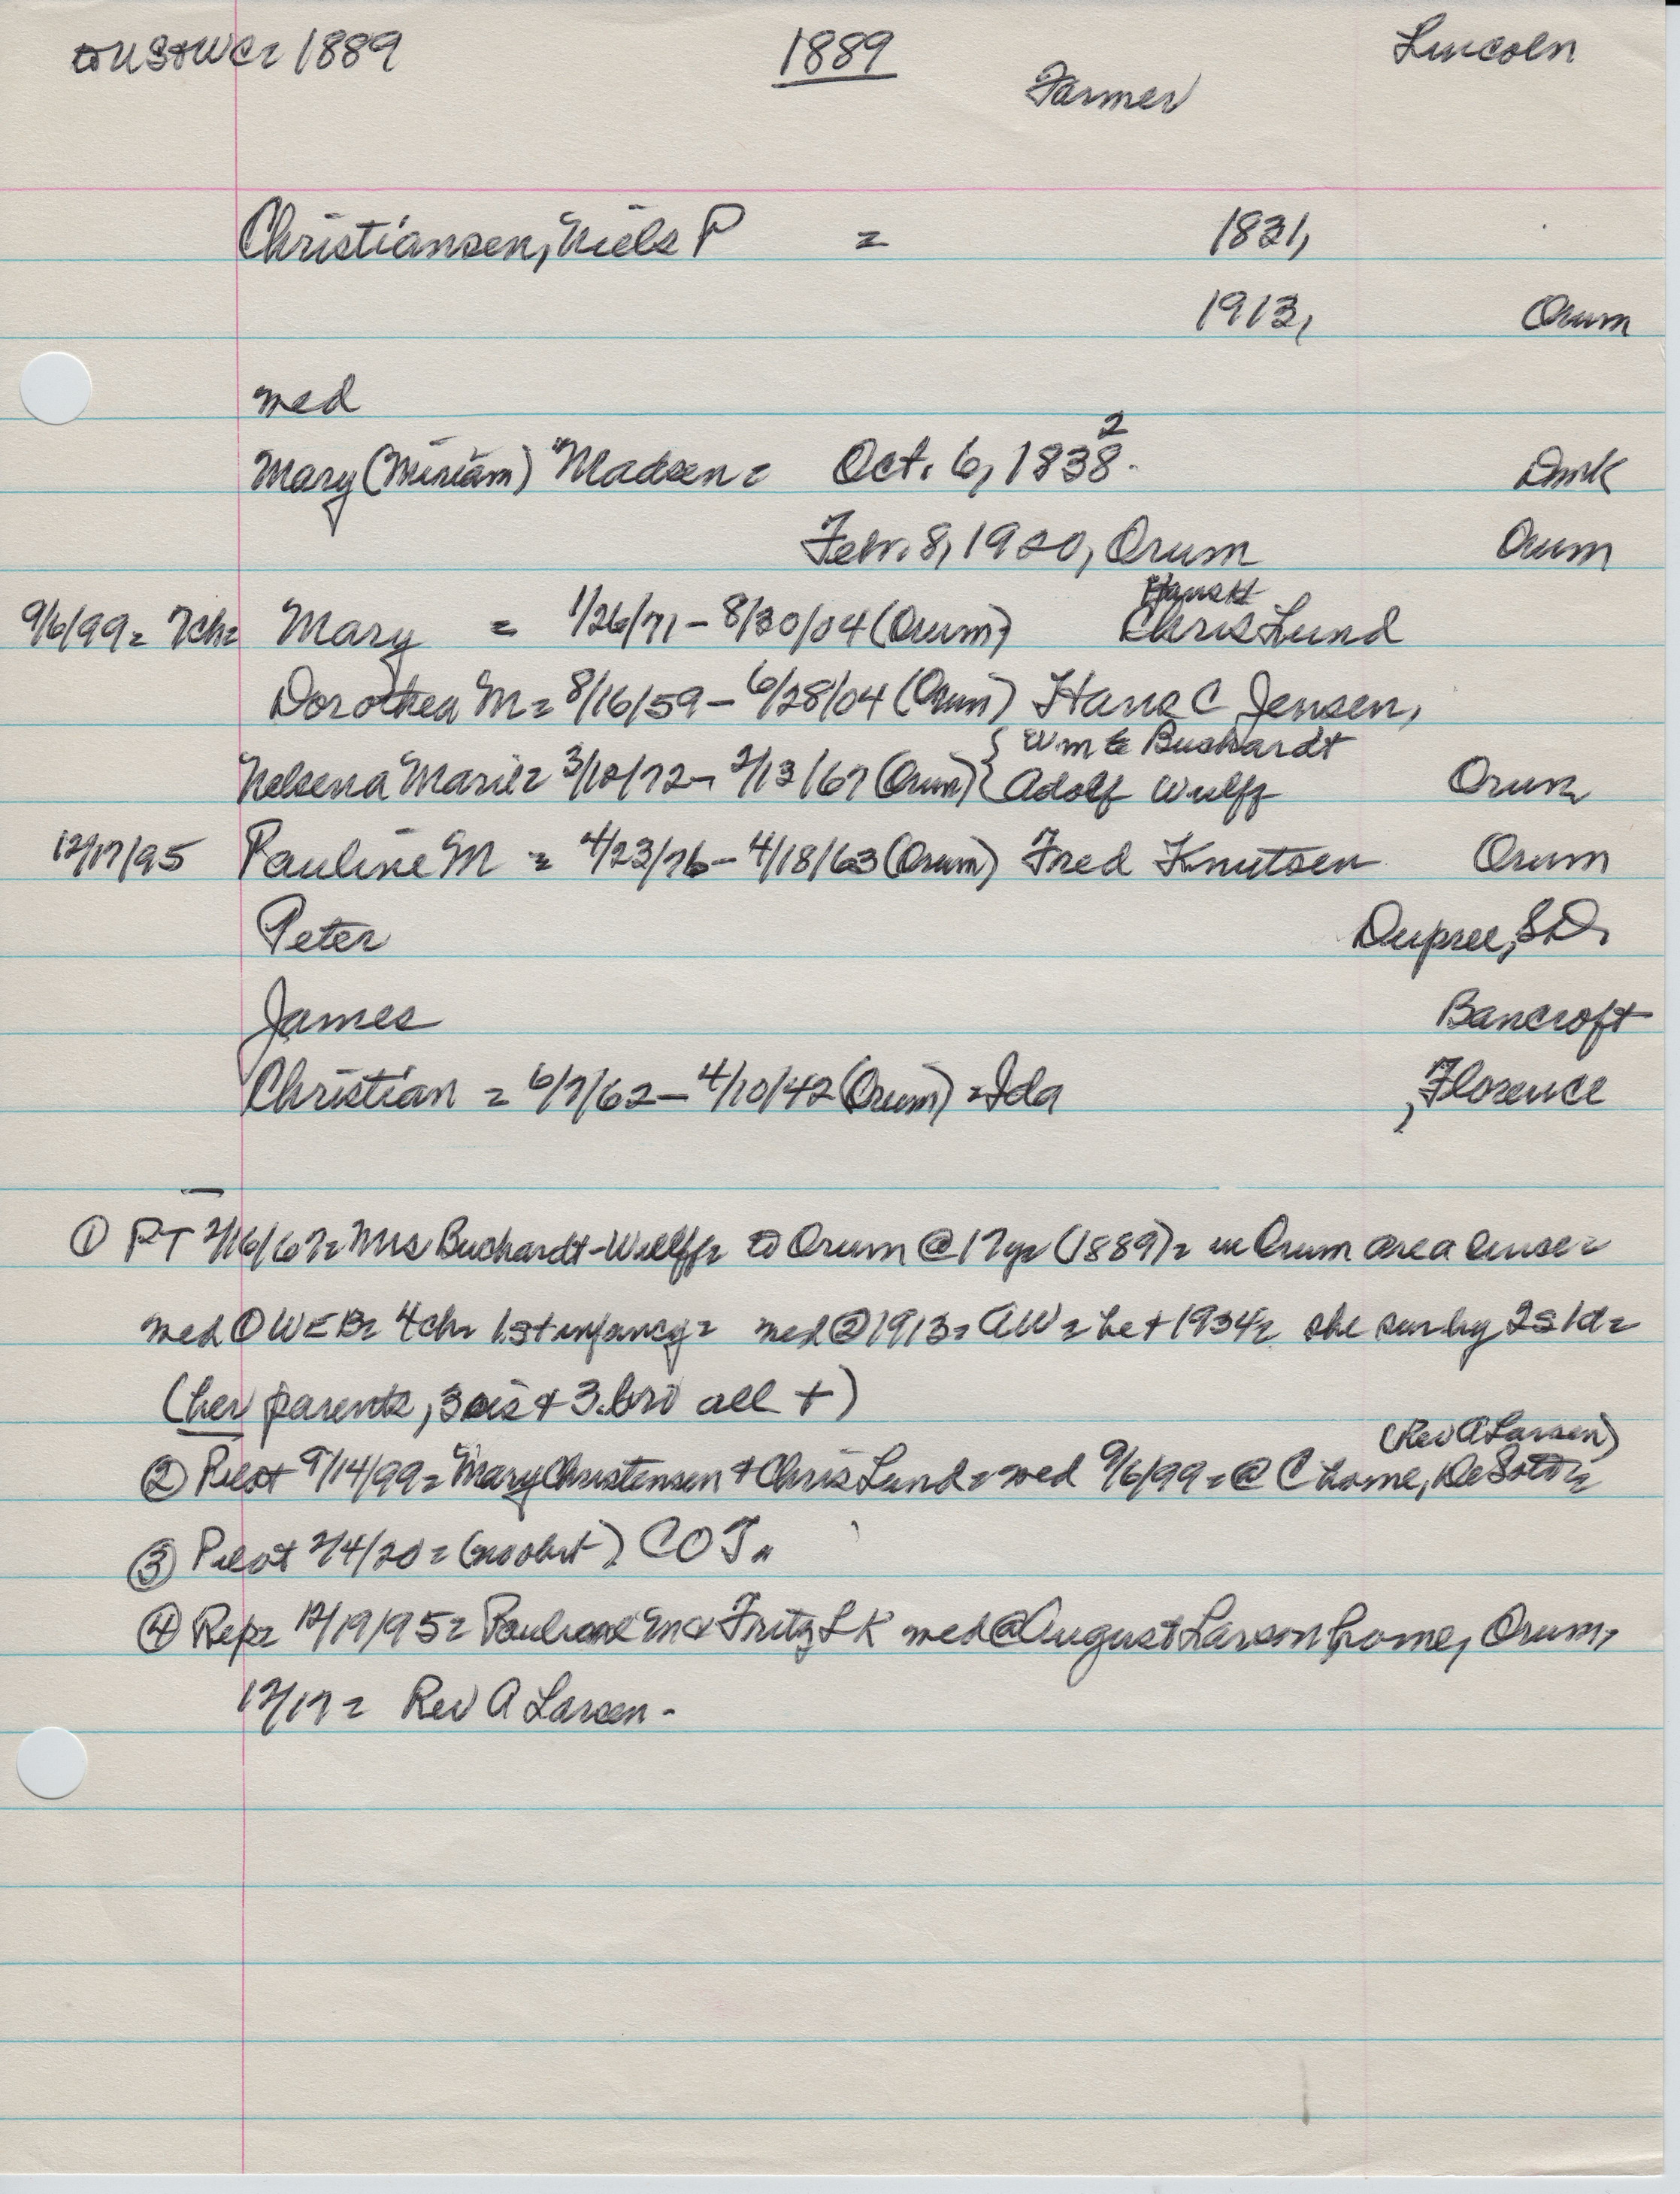 to US & WC = 1889 1889 Lincoln
Farmer
Christiansen, Niels P = 1831,
1913, Orum
med
2
Mary (Miriam) Madsen = Oct. 6, 1838. Dmk
Febr. 8, 1920, Orum Orum
Hans H
9/6/99 = 7ch = Mary = 1/26/71 - 8/30/04 (Orum) Chris Lund
Dorothea M = 8/16/59 - 6/28/04 (Orum) Hans C Jensen,
{ Wm E Buchardt
Nelsena Marie = 3/12/72 - 2/13/67 (Orum) { Adolf Wulff Orum
12/17/95 Pauline M = 4/23/76 - 4/18/63 (Orum) Fred Knutsen Orum
Peter Dupree, SD,
James Bancroft
Christian = 6/7/62 - 4/10/42 (Orum) = Ida , Florence
① PT 2/16/67 = Mrs Buchardt-Wulff = to Orum @ 17 yr (1889) = in Orum area since =
med ① WEB = 4ch = 1st infancy = med ② 1913 = AW = he + 1934 = she sur by 2s 1d =
(her parents, 3 sis + 3 bro all +)
(Rev A Larsen)
② Pilot 9/14/99 = Mary Christensen + Chris Lund = med 9/6/99 = @ C home, De Soto =
③ Pilot 2/4/20 = (no obit) COT.
④ Rep = 12/19/95 = Pauline M & Fritz L K med @ August Larson home, Orum,
12/17 = Rev A Larsen -